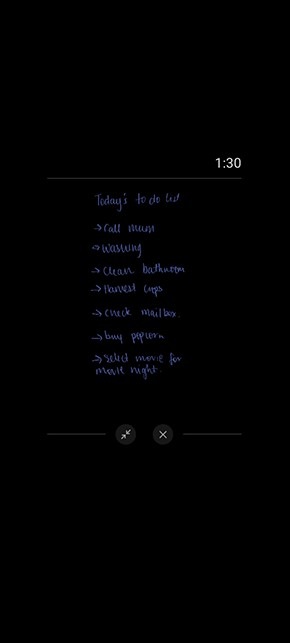 1:30
Today's to do list
→ Call mum
→ Washing
→ Clean bathroom
→ Harvest crops
→ Check mailbox.
→ buy popcorn
→ Select movie for
movie night.